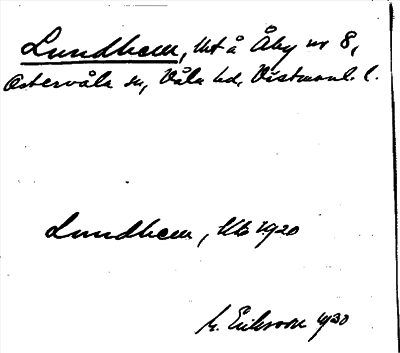 Lundhem, lht å Åby nr 8,
Östervåla sn, Våla hd, Västmanl. l.
Lundhem, Utb 1920
M. Eriksson 1930